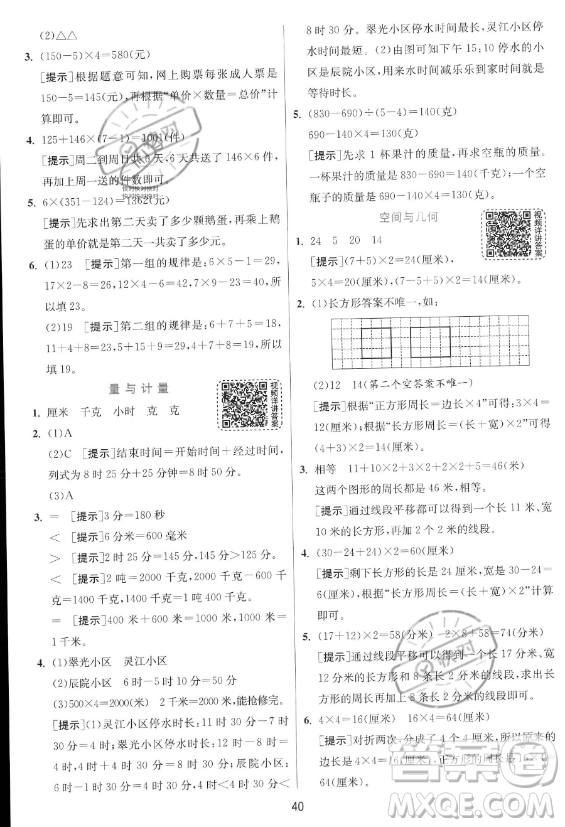 (2)△△
3. (150-5)×4=580(元)
[提示]根据题意可知，网上购票每张成人票是
150-5=145(元)，再根据“单价×数量=总价”计
算即可。
4. 125+146×(7-1)=1001(件)
[提示]周二到周日共6天，6天共送了146×6件，
再加上周一送的件数即可。
5. 6×(351-124)=1362(元)
[提示]先求出第二天卖了多少颗鹅蛋，再乘上鹅
蛋的单价就是第二天卖了多少元。
6. (1)23 [提示]第一组的规律是：6×5-1=29，
17×2-8=26，12×4-6=42，9×3-4=23，所
以填23。
(2)19 [提示]第二组的规律是：6+7+5=18，
11+4+8=23，5+9+15=29，3+6+10=19，
所以填19。
量与计量
1. 厘米 千克 小时 克 克
视频详讲答案
2. (1)A
(2)C [提示]结束时间=开始时间+经过时间，
列式为8时25分+25分钟=8时50分。
(3)A
3. = [提示]3分=180秒
< [提示]6分米=600毫米
< [提示]2时25分-1时25分=1时
= [提示]2吨=2000千克，2000千克-600千
克=1400千克，1400千克=1400千克
= [提示]1000米-400米+400米=1000米，
1000米=1千米。
4. (1)翠光小区 灵江小区
(2)辰院小区 6时-5时10分=50分
(3)500×4=2000(米) 2千米=2000米，能抢修完。
[提示](1)灵江小区停水时长：11时30分-7时
30分=4时；翠光小区停水时长：12时-8时=4
时，4时+30分=4时30分；辰院小区：
12时-8时=4时，4时<4时30分，4时<4时30
8时30分。翠光小区停水时间最长，灵江小区停
水时间最短。(2)图可知下午15:10停水的小区
是辰院小区，用来水时间减乐乐到家的时间就是
等待时长。
5. (830-690)÷(5-4)=140(克)
690-140×4=130(克)
[提示]先求1杯果汁的质量，再求空瓶的质量。
一杯果汁的质量是830-690=140(克)；一个空
瓶子的质量是690-140×4=130(克)。
空间与几何
视频详讲答案
1. 24 5 20 14
[提示](7+5)×2=24(厘米)，
5×4=20(厘米)，(7-5+5)×2=14(厘米)。
2. (1)长方形答案不唯一，如：
(2)12 14(第二个空答案不唯一)
[提示]根据“正方形周长=边长×4”可得：3×4=
12(厘米)；根据“长方形周长=(长+宽)×2”可得：
(4+3)×2=14(厘米)。
3. 相等 11+10×2+3×2+4+5=46(米)
这两个图形的周长都是46米，相等。
[提示]通过线段平移，可将图形看成一个长11
米、宽10米的长方形，加上2条3米的线段。
4. (30-24+24)×2=60(厘米)
[提示]剩下长方形的长是24厘米，宽是30-24=
6(厘米)，再根据“长方形的周长=(长+宽)×2”计算
即可。
5. (17+12)×2=58(厘米) 2×8+58=74(厘米)
[提示]通过线段平移可以看成一个长17厘米、
宽12厘米的长方形和8条长2厘米的线段，求出
长方形的周长后再加上8条2厘米的线段即可。
6. 4×4=16(厘米) 16×4=64(厘米)
[提示]对折两次，分成了4个正方形，所以原来正
方形的边长是4×4=16(厘米)，正方形的周长是16×4=
64(厘米)。
40
答案圈
MXQE.COM